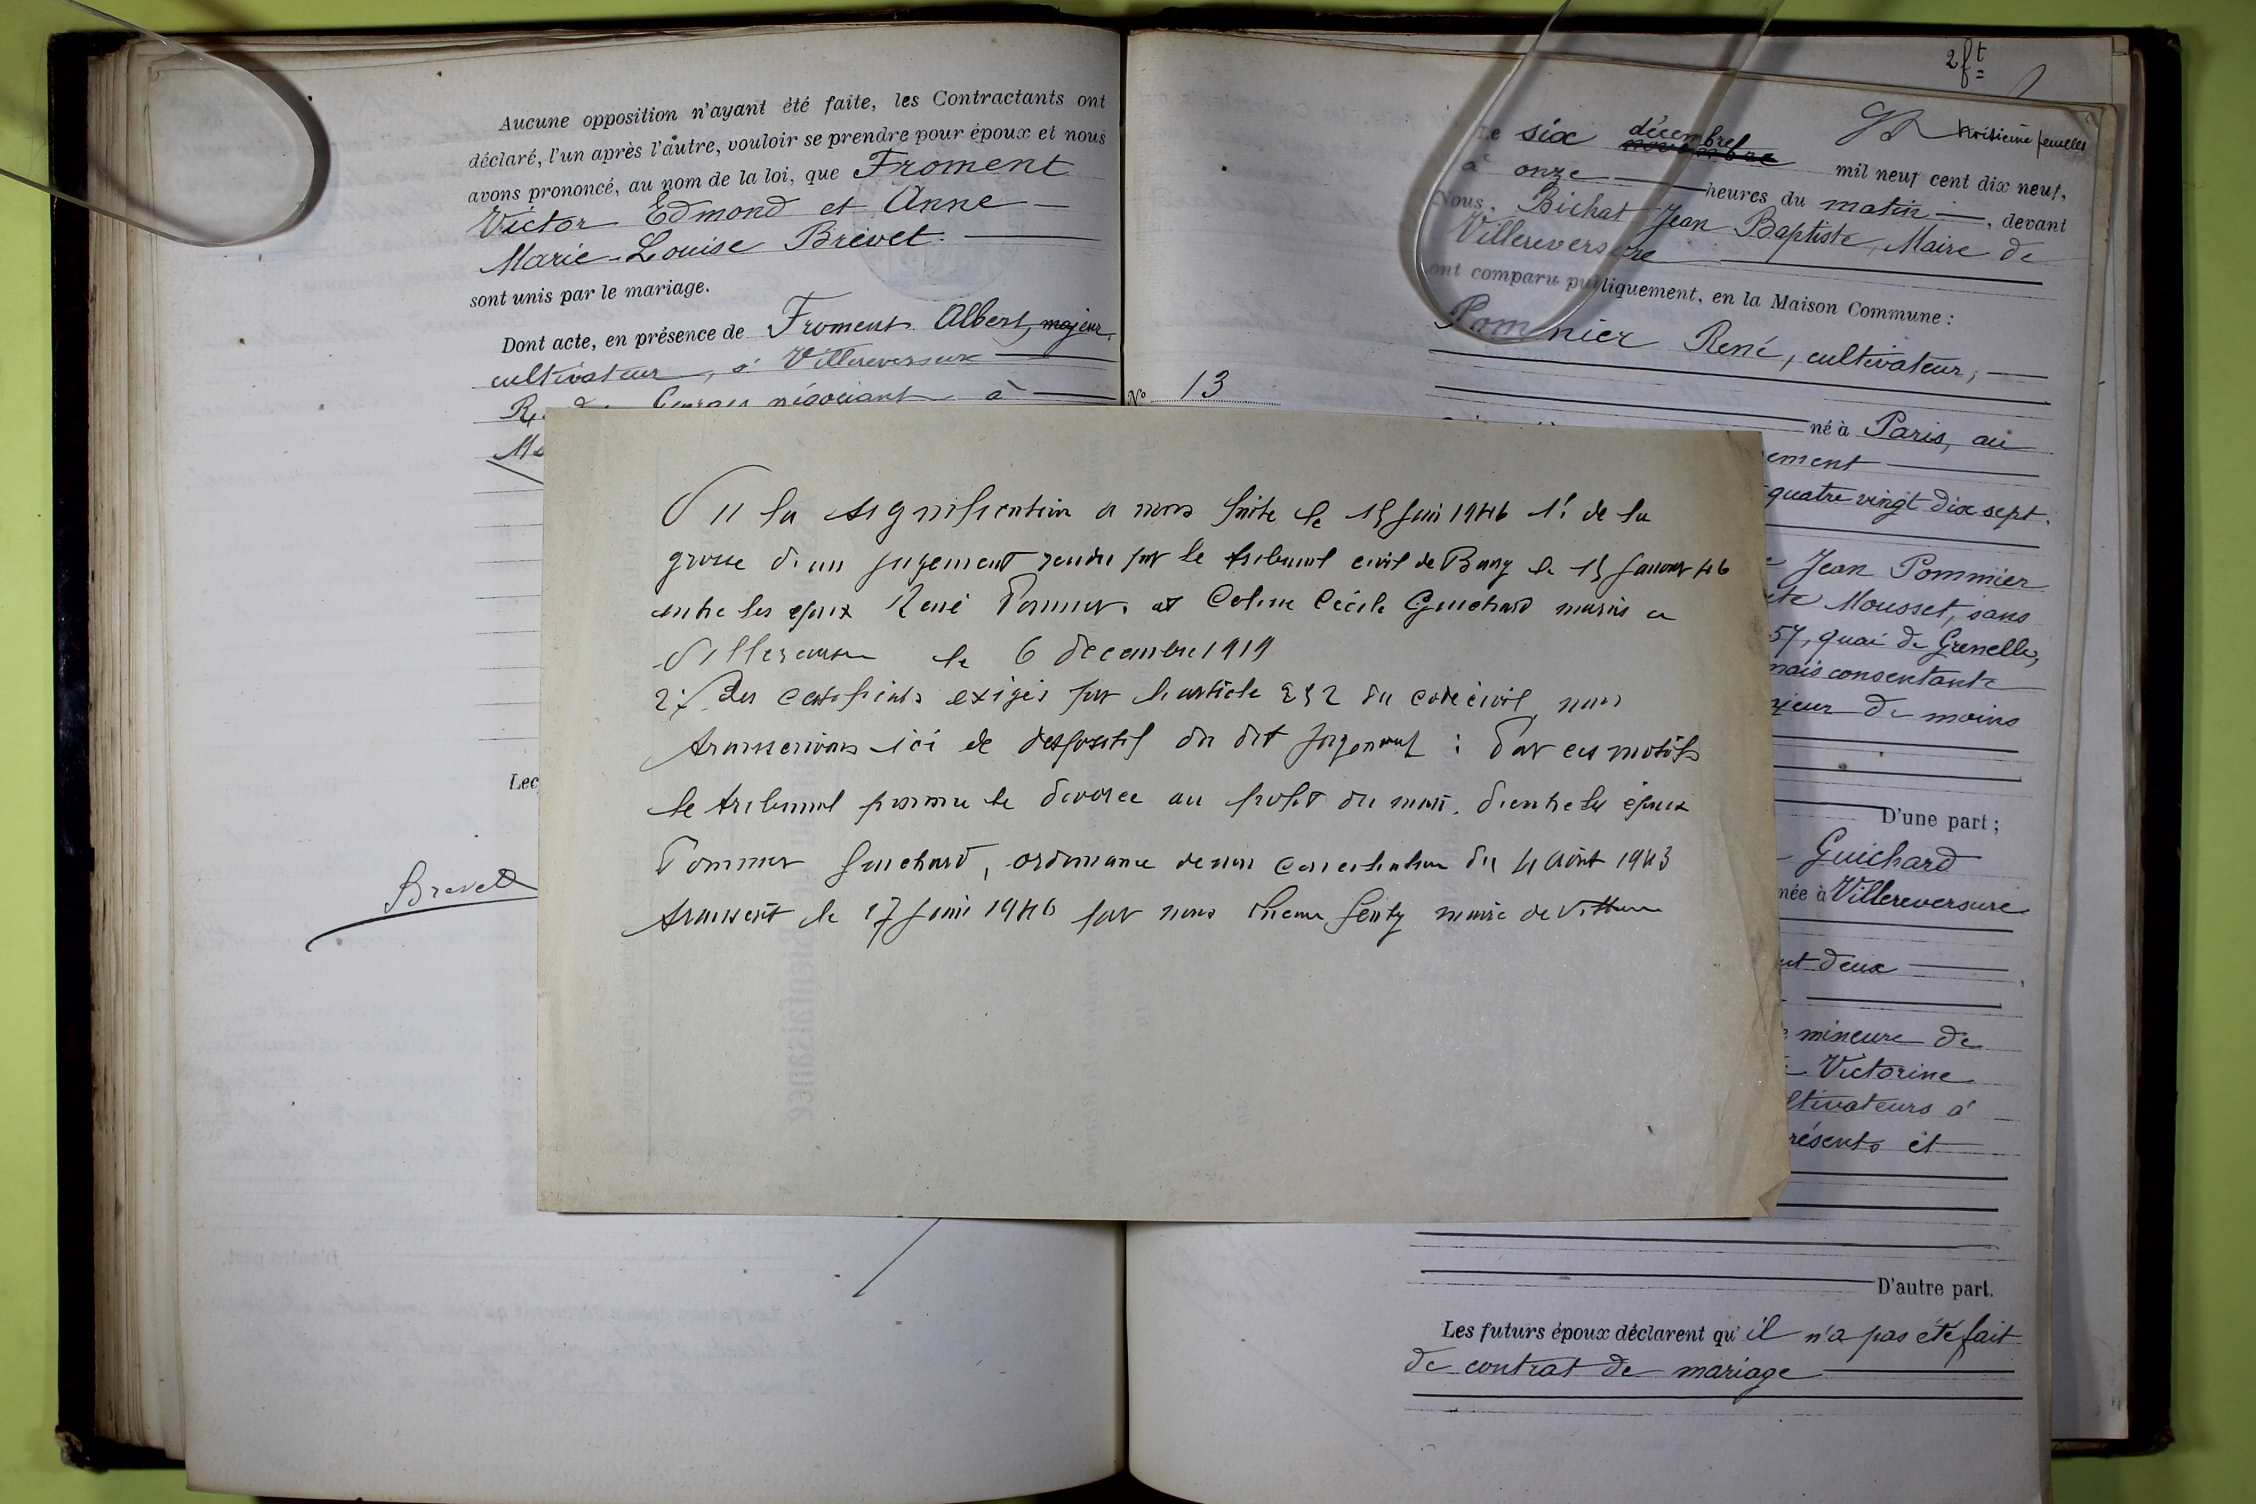 Aucune opposition n'ayant été faite, les Contractants ont
déclaré, l'un après l'autre, vouloir se prendre pour époux et nous
avons prononcé, au nom de la loi, que Froment
Victor Edmond et Anne
Marie-Louise Brevet.
sont unis par le mariage.
Dont acte, en présence de Froment Albert, majeur,
cultivateur, à Villereversure
Georges négociant à
Lec
Brevet
Vu la signification a nous faite le 15 Juin 1946 1º de la
grosse d'un jugement rendu par le tribunal civil de Bourg le 15 Janvier 46
entre les epoux René Pommier et Celine Cécile Guichard mariés a
Villereversure le 6 decembre 1919
2º Des certificats exigés par l'article 252 du code civil, nous
transcrivons ici le dispositif du dit jugement : Par ces motifs
le tribunal prononce le divorce au profit du mari. d'entre les époux
Pommier Guichard, ordonnance de non conciliation du 4 Août 1943
transcrit le 17 Juin 1946 par nous maire de
2 ft
troisième
Le six décembre novembre mil neuf cent dix neuf,
à onze heures du matin, devant
Nous, Bichat Jean Baptiste, Maire de
Villereversure
ont comparu publiquement, en la Maison Commune :
Pommier René, cultivateur,
No 13
né à Paris, au
ement
quatre vingt dix sept.
Jean Pommier
Mousset, sans
57, quai de Grenelle,
mais consentante
jeur de moins
D'une part ;
Guichard
née à Villereversure
deux
mineure de
Victorine
ltivateurs à
résents et
D'autre part.
Les futurs époux déclarent qu'il n'a pas été fait
de contrat de mariage